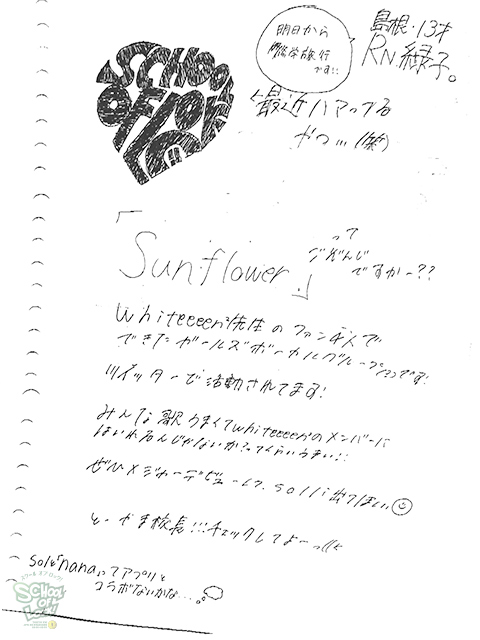 島根・13才
RN 緑子。
明日から
修学旅行
です!!
SCHOOL
OF LOCK
最近ハマってる
やつ…(笑)
「Sunflower」って
ごぞんじ
ですかー??
whiteeeen先生のファン5人で
できたガールズボーカルグループっす!
ツイッターで活動されてます!
みんな歌うまくてwhiteeeenのメンバーに
はいれるんじゃないか?ってくらいうまい!!
ぜひメジャーデビューして、sol!に出てほしい
とーやま校長!!!チェックしてよーっ
solと「nana」ってアプリと
コラボないかな…。
スクールオブロック!
SCHOOL
OF
LOCK!